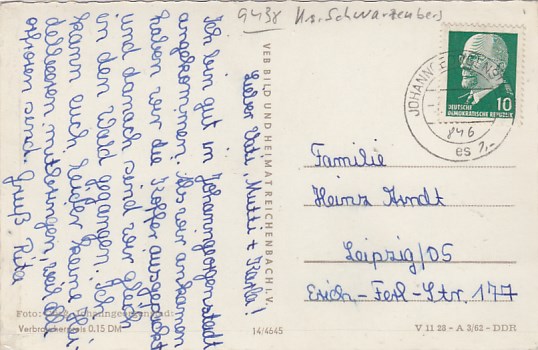 9438 Kr. Schwarzenberg
Lieber Vati, Mutti + Karla!
Ich bin gut in Johanngeorgenstadt
angekommen. Als wir ankamen
haben wir die Koffer ausgepackt
und danach sind wir gleich
in den Wald gegangen. Ich
kann euch leider keine Hei-
delbeeren mitbringen weil alle
erfroren sind. Gruß Rita
VEB BILD UND HEIMAT REICHENBACH I. V.
DEUTSCHE
DEMOKRATISCHE REPUBLIK
10
Familie
Heinz Arndt
Leipzig/O5
Erich-Ferl-Str. 177
Foto:
Verbraucherpreis 0.15 DM
14/4645
V 11 28 - A 3/62 - DDR